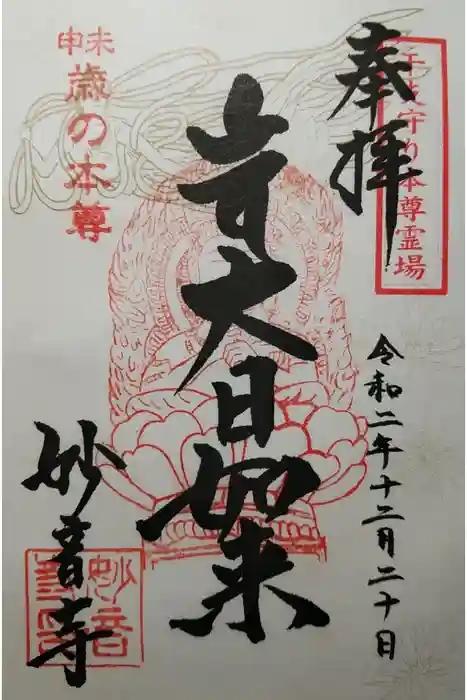 奉拝
干支守り本尊霊場
令和二年十二月二十日
大日如来
未申
歳の本尊
妙音寺
妙音